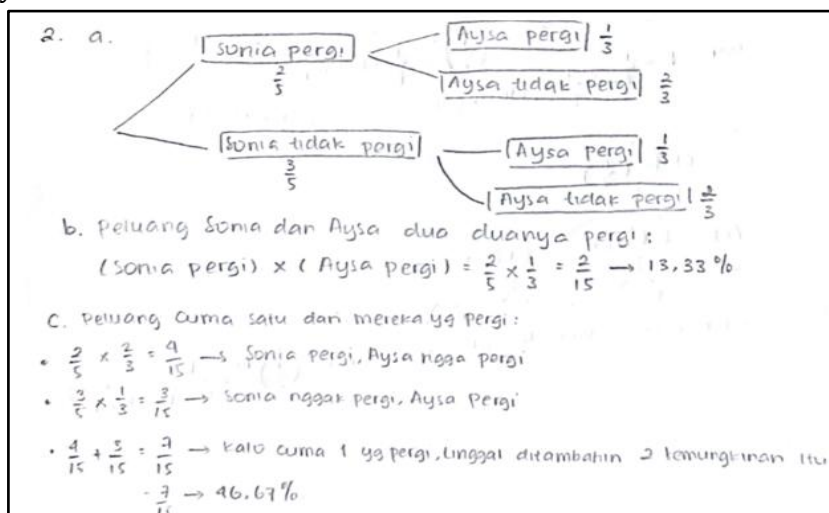 2. a.
Sonia pergi 2/5
Aysa pergi 1/3
Aysa tidak pergi 2/3
Sonia tidak pergi 3/5
Aysa pergi 1/3
Aysa tidak pergi 2/3
b. Peluang Sonia dan Aysa dua duanya pergi:
(Sonia pergi) x (Aysa pergi) = 2/5 x 1/3 = 2/15 → 13,33 %
C. Peluang cuma satu dari mereka yg pergi:
• 2/5 x 2/3 = 4/15 → Sonia pergi, Aysa ngga pergi
• 3/5 x 1/3 = 3/15 → Sonia nggak pergi, Aysa pergi
• 4/15 + 3/15 = 7/15 → kalo cuma 1 yg pergi, tinggal ditambahin 2 kemungkinan itu
- 7/15 → 46,67 %